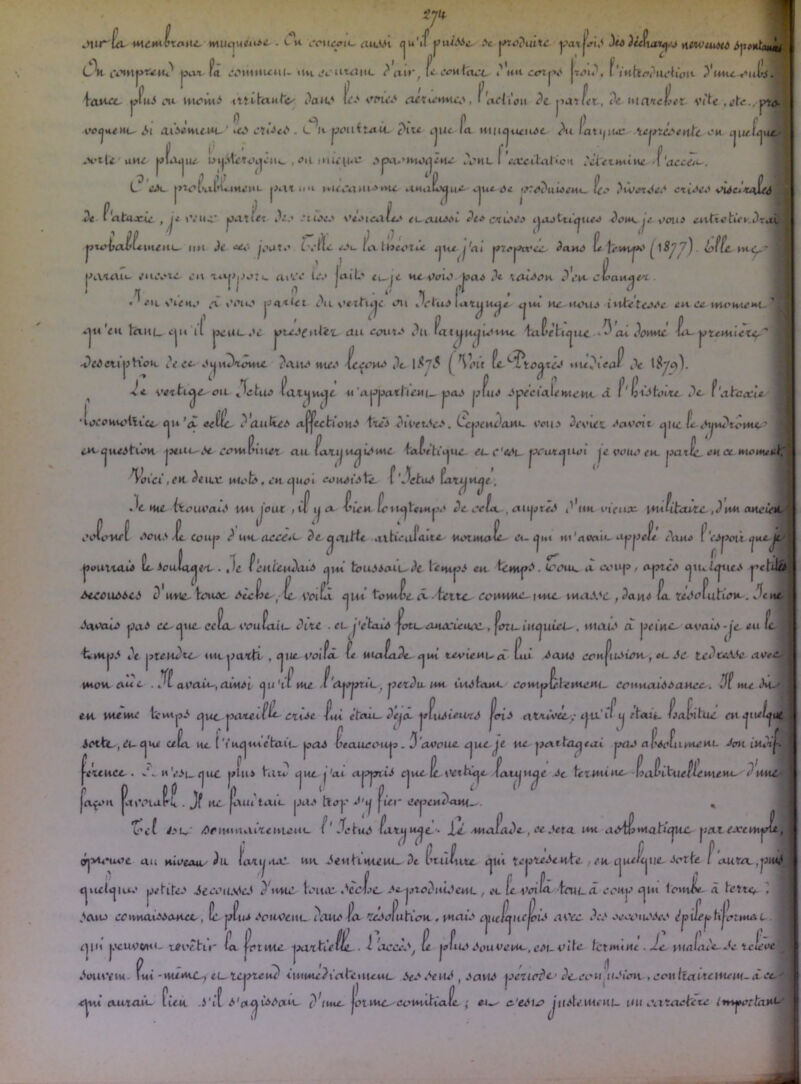 274
sur la membrane muqueuse. On conçoit aussi qu'il puisse se produire parfois des décharges nerveuses spontanées
On comprend par là comment un courant d'air, le contact d'un corps froid, l'introduction d'une subs-
tance plus ou moins irritante, dans les voies aériennes, l'action de parler, de marcher vite, etc., pro-
voquent si aisément les crises. On pourrait dire que la muqueuse du larynx représente en quelque
sorte une plaque hystérogène, ou mieux spasmogène dont l'excitation détermine l'accès.
C'est probablement par un mécanisme analogue que se produisent les diverses crises viscérales
de l'ataxie, je veux parler des crises vésicales et aussi des crises gastriques dont je vous entretiendrai
probablement un de ces jours. Telle est la théorie que j'ai proposée dans le temps (1877). Elle me
paraît encore en rapport avec les faits et je ne vois pas de raison d'en changer.
J'en viens à vous parler du vertige ou Ictus laryngé qui ne nous intéresse en ce moment
qu'en tant qu'il peut se présenter au cours du laryngisme tabétique. J'ai donné la première
description de ce syndrôme dans mes leçons de 1878 (Voir le Progrès médical de 1879).
Le vertige ou Ictus laryngé n'appartient pas plus spécialement à l'histoire de l'ataxie
locomotrice qu'à celle d'autres affections très diverses. Cependant vous devez savoir que le syndrôme
en question peut se combiner au laryngisme tabétique et c'est pourquoi je vous en parle en ce moment.
Voici, en deux mots, en quoi consiste l'Ictus laryngé.
Je me trouvais un jour, il y a bien longtemps de cela, auprès d'un vieux militaire, d'un ancien
colonel sous le coup d'un accès de goutte articulaire normale et qui m'avait appelé dans l'espoir que je
pourrais le soulager. Je l'entendais qui toussait de temps en temps. Tout à coup, après quelques petites
secousses d'une toux sèche, le voilà qui tombe à terre comme une masse, dans la résolution. Je ne
savais pas ce que cela voulait dire et j'étais fort anxieux, fort inquiet, mais à peine avais-je eu le
temps de prendre un parti, que voilà le malade qui revient à lui sans confusion, et se redresse avec
mon aide. Il avait, ainsi qu'il me l'apprit, perdu un instant complètement connaissance. Il me dit
en même temps que pareille crise lui était déjà plusieurs fois arrivée; qu'il y était habitué en quelque
sorte, et que cela ne l'inquiétait pas beaucoup. J'avoue que je ne partageai pas absolument son indif-
férence. Ce n'est que plus tard que j'ai appris que le vertige laryngé se termine habituellement d'une
façon favorable. Il ne faudrait pas trop s'y fier cependant.
Tel est sommairement l'Ictus laryngé. Le malade, ce sera un asthmatique par exemple,
éprouve au niveau du larynx un sentiment de brûlure qui représente, en quelque sorte l'aura, puis
quelques petites secousses d'une toux sèche se produisent, et le voilà tout à coup qui tombe à terre,
sans connaissance, le plus souvent dans la résolution, mais quelquefois avec des secousses épileptiformes
qui peuvent revêtir la forme partielle. L'accès, le plus souvent, est vite terminé. Le malade se relève
souvent lui-même, et reprend immédiatement ses sens, sans période de confusion, contrairement à ce
qui aurait lieu s'il s'agissait d'une forme comitiale; et c'est là justement un caractère important